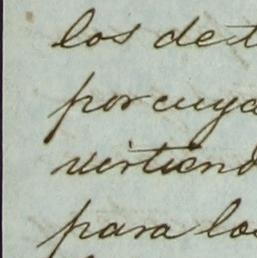 los de t
por cuya
virtiend
para los